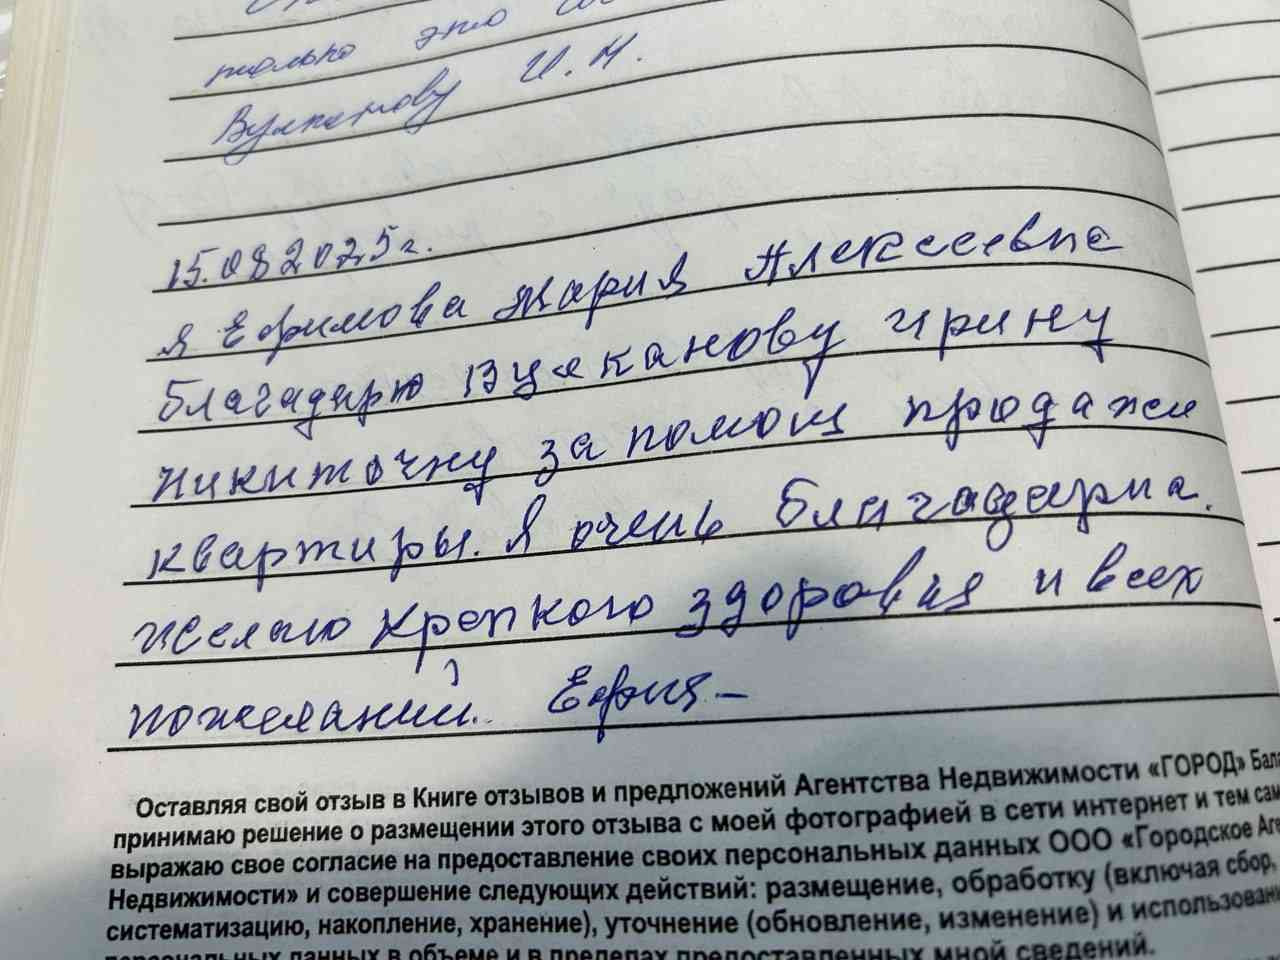 только это
Вулканову И.Н.
15.08 2025 г.
я Ефимова Мария Алексеевна
благадарю Вулканову ирину
никиточну за помощ продажи
квартиры. Я очень благадарна.
желаю крепкого здоровия и всех
пожеланий. Ефим-
Оставляя свой отзыв в Книге отзывов и предложений Агентства Недвижимости «ГОРОД» Бала
принимаю решение о размещении этого отзыва с моей фотографией в сети интернет и тем сам
выражаю свое согласие на предоставление своих персональных данных ООО «Городское Аге
Недвижимости» и совершение следующих действий: размещение, обработку (включая сбор,
систематизацию, накопление, хранение), уточнение (обновление, изменение) и использован
персональных данных в объеме и в пределах предоставленных мной сведений.